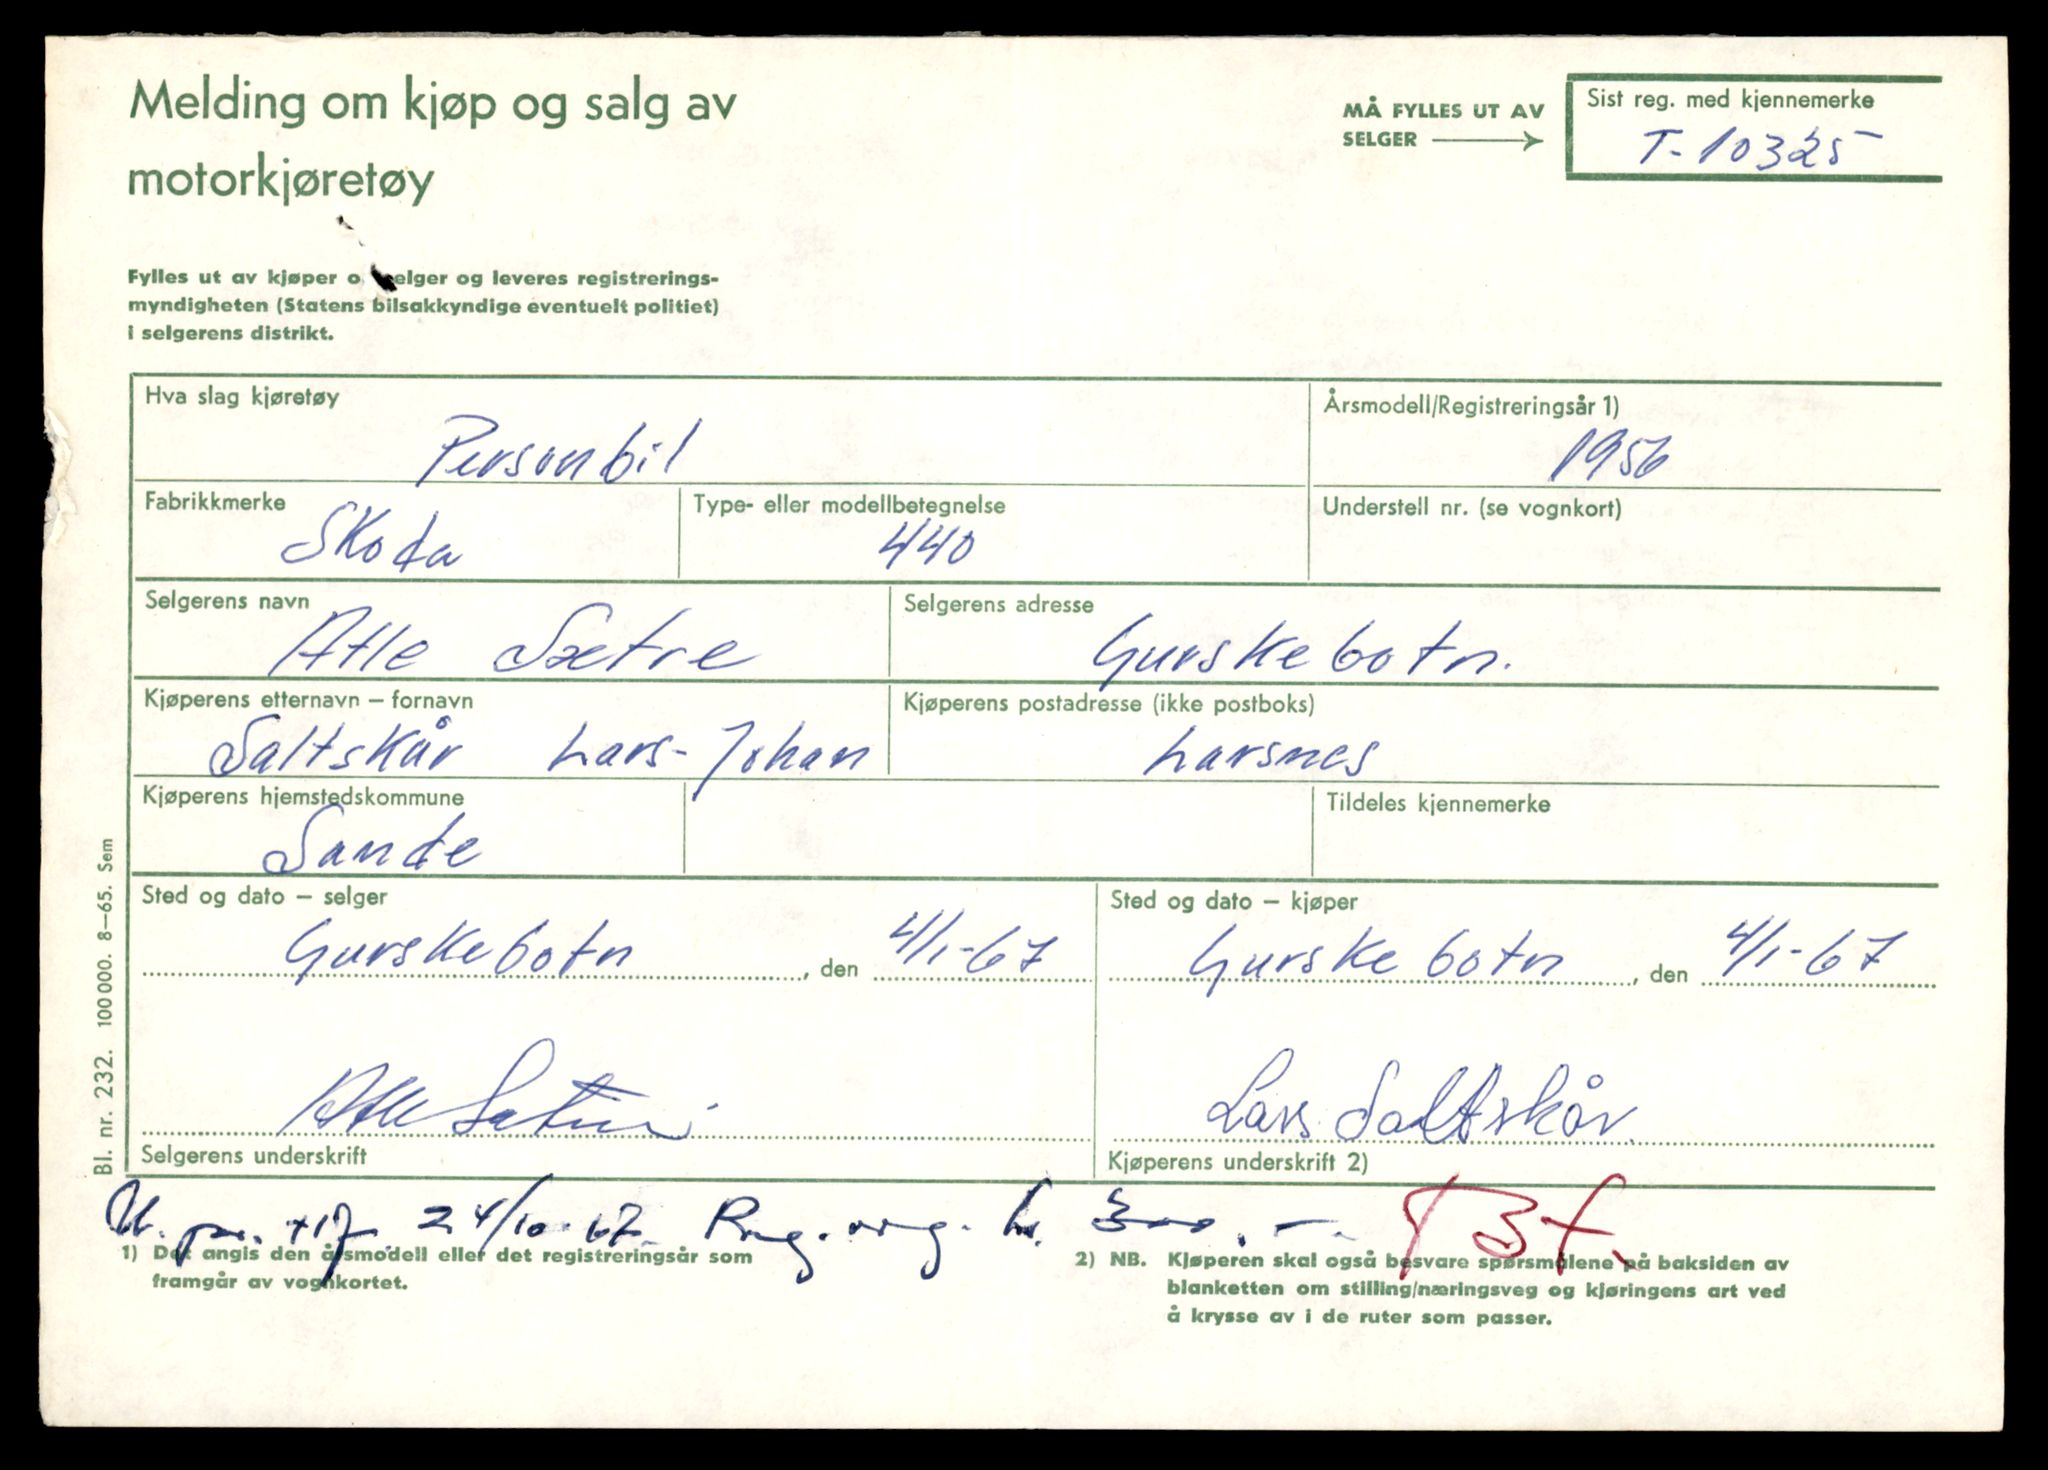 Melding om kjøp og salg av
motorkjøretøy
MÅ FYLLES UT AV
SELGER
Sist reg. med kjennemerke
T-10325
Fylles ut av kjøper o selger og leveres registrerings-
myndigheten (Statens bilsakkyndige eventuelt politiet)
i selgerens distrikt.
Hva slag kjøretøy
Personbil
Årsmodell/Registreringsår 1)
1956
Fabrikkmerke
Skoda
Type- eller modellbetegnelse
440
Understell nr. (se vognkort)
Selgerens navn
Atle Sætre
Selgerens adresse
Gurskebotn.
Kjøperens etternavn – fornavn
Saltskår Lars-Johan
Kjøperens postadresse (ikke postboks)
Larsnes
Kjøperens hjemstedskommune
Sande
Tildeles kjennemerke
Sted og dato – selger
Gurskebotn, den 4/1-67
Sted og dato – kjøper
Gurskebotn, den 4/1-67
Atle Sætre
Selgerens underskrift
Lars Saltskår.
Kjøperens underskrift 2)
pr. tlf 24/10-67. kr. 300.-
1) Det angis den årsmodell eller det registreringsår som
framgår av vognkortet.
2) NB. Kjøperen skal også besvare spørsmålene på baksiden av
blanketten om stilling/næringsveg og kjøringens art ved
å krysse av i de ruter som passer.
Bl. nr. 232. 100 000. 8–65. Sem